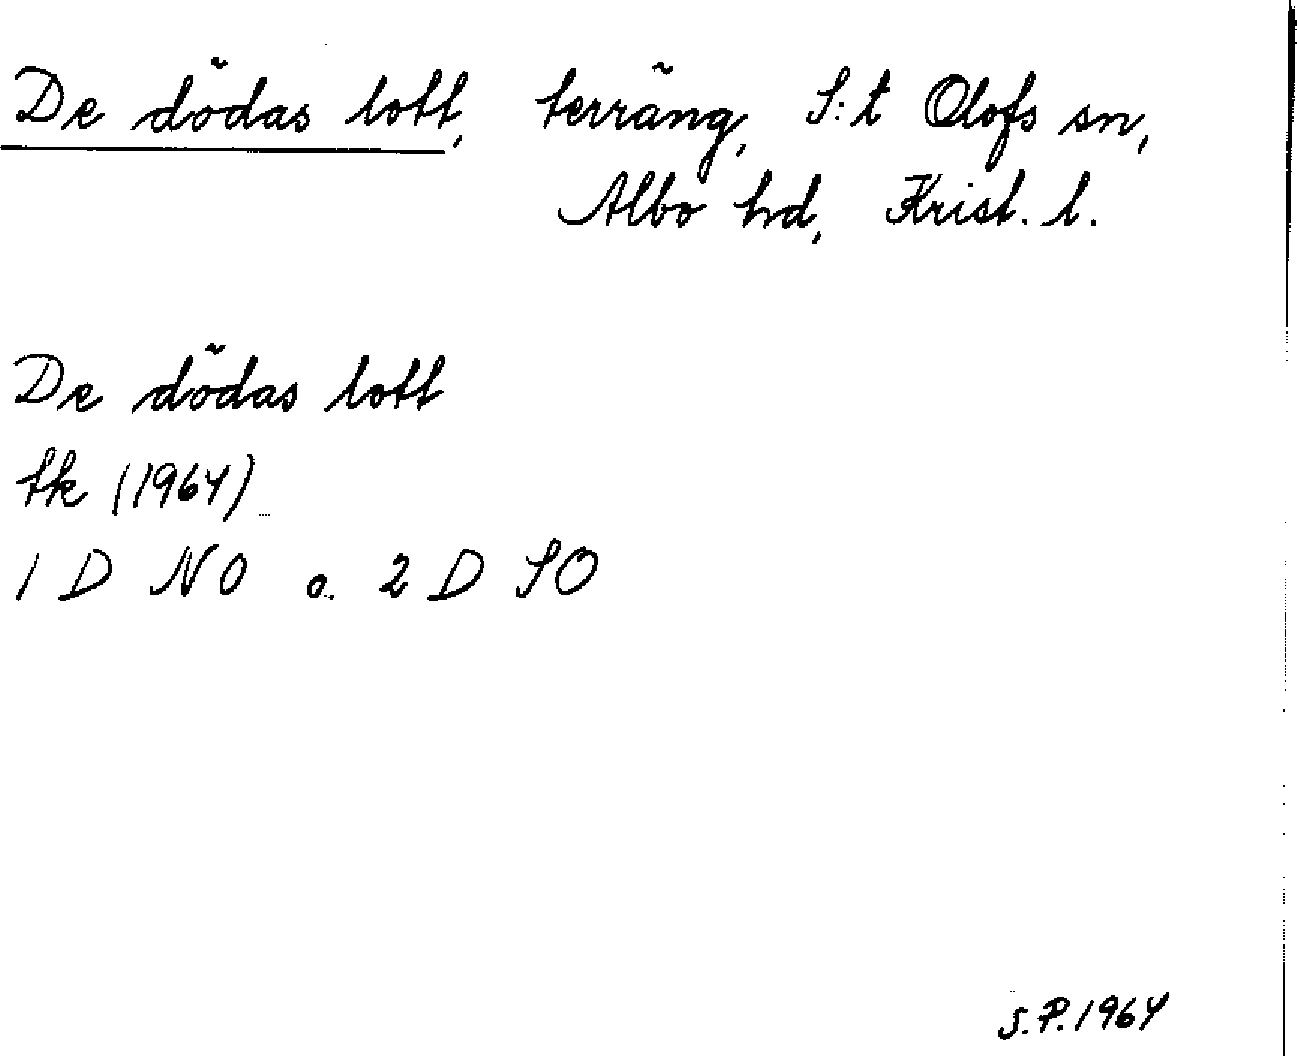 De dödas lott, terräng, S:t Olofs sn,
Albo hd, Krist. l.
De dödas lott
tk (1964)
1 D NO o. 2 D SO
S.P. 1964